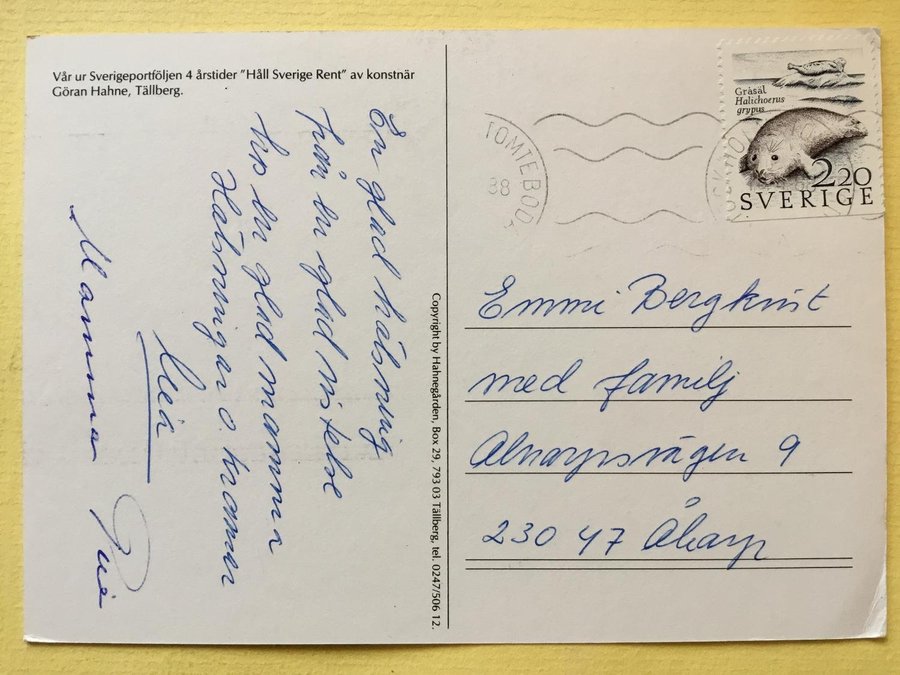 Vår ur Sverigeportföljen 4 årstider "Håll Sverige Rent" av konstnär
Göran Hahne, Tällberg.
En glad hälsning
från en glad vistelse
hos en glad mamma
Hälsningar o. kramar
Mamma
Copyright by Hahnegården, Box 29, 793 03 Tällberg, tel. 0247/506 12.
TOMTEBOD
88
Gråsäl
Halichoerus
grypus
2.20
SVERIGE
Emmi Bergkvist
med familj
Alnarpsvägen 9
230 47 Åkarp